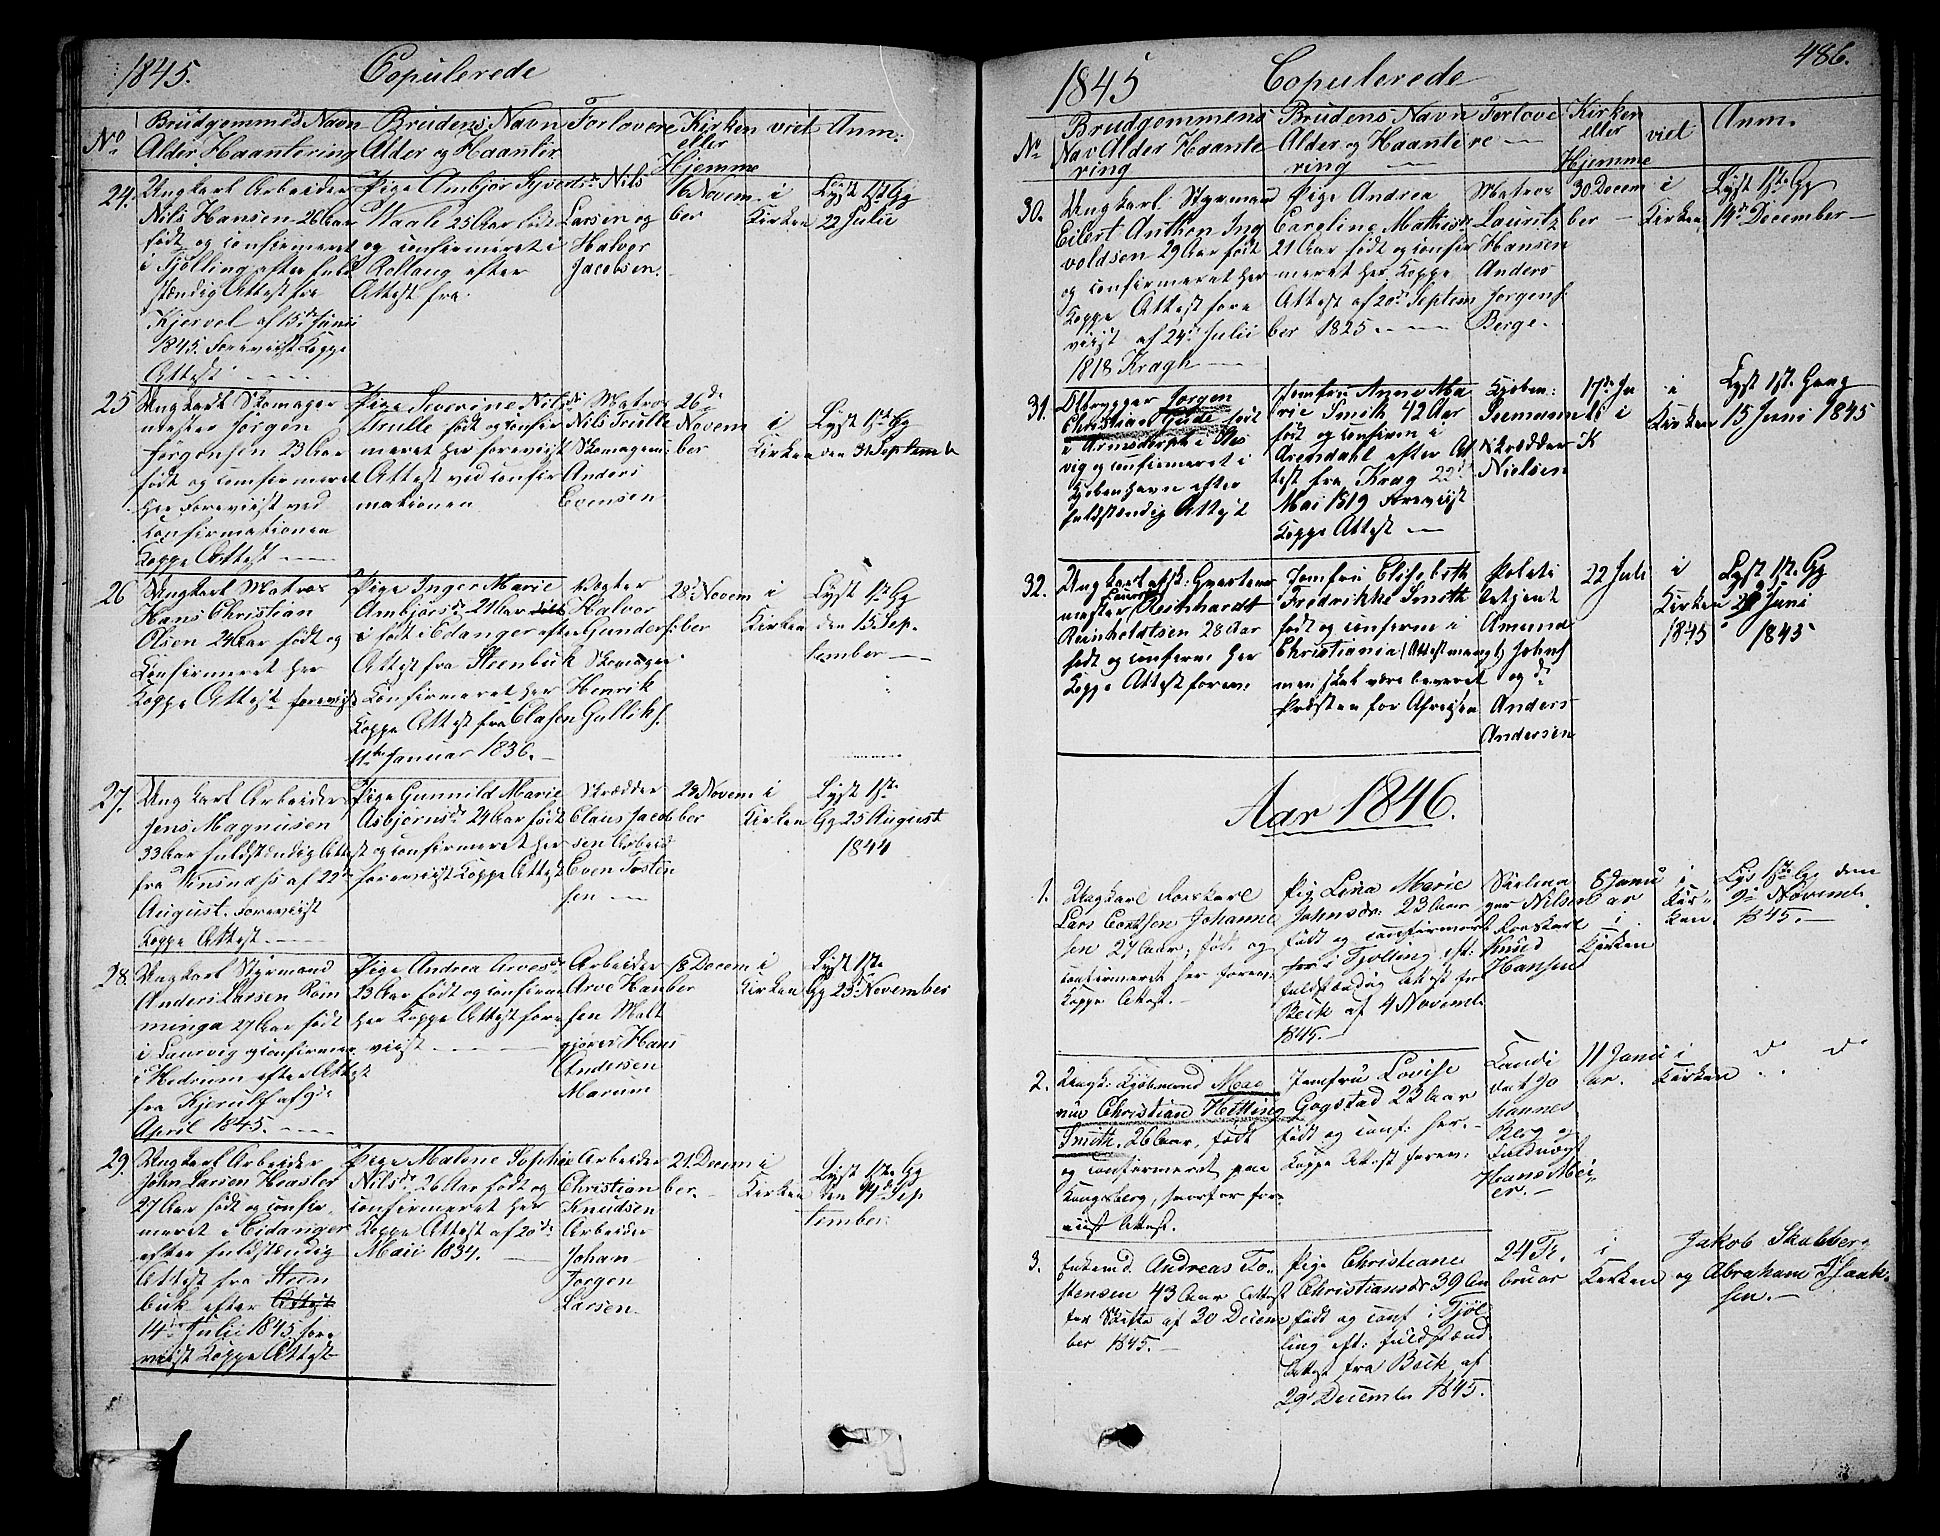 1845. Copulerede
No
Brudgommens Navn
Alder Haantering
Brudens Navn
Alder og Haantir
Forlovere
Kirken
eller
Hjemme
viet
Anm:
24.
Ungkarl Arbeider
Nils Hansen 26 Aar
født og confirmeret
i Tjølling efter fuld
stændig Attest fra
Kjerrel af 15de Junii
1845. Foreviist Koppe
Attest
Pige Ambjør Syverds
Waale 25 Aar født
og confirmeret i
Rollaug efter
Attest fra.
Nils
Larsen og
Halvor
Jacobsen.
16 Novem
ber
i
Kirken
Lyst 1ste Gg
22 Julii
25
Ungkarl Skomager
mester Jørgen
Jørgensen 23 Aar
født og confirmeret
her Foreviist ved
Confirmationen
Koppe Attest
Pige Severine Nilsds
Trulle født og confir
meret her foreviist
Attest ved confir
mationen
Matros
Nils Trulle
Skomagem:
Anders
Evensen
26de
Novem
ber
i
Kirken
Lyst 1ste Gg
den 3 Septemb
26
Ungkarl Matros
Hans Christian
Olsen 24 Aar født og
Confirmeret her
Koppe Attest foreviist
Pige Inger Marie
Ambjørsdr 21 Aar
i født i Eidanger efter
Attest fra Steenbuk
Confirmeret her
Koppe Attest fra Clasen
11te Januar 1836.
Vegter
Halvor
Gunders:
Skomager
Henrik
Golliks.
28d Novem
ber
i
Kirken
Lyst 1ste Gg
den 15 Sep
tember
27.
Ungkarl Arbeider
Jens Magnusen
33 Aar fuldstændig Attest
fra af 22de
August. Foreviist
Koppe Attest
Pige Gunnild Marie
Asbjørnsdr 24 Aar født
og confirmeret her
foreviist Koppe Attest
Skrædder
Claus Jacob
sen Arbeid
Even Tosten
sen
23 Novem
ber
i
Kirken
Lyst 1ste
Gg 25 August
1844
28.
Ungkarl Styrmand
Anders Larsen Røm
minga 27 Aar født
i Laurvig og confirmer
i Hedrum efter Attest
fra Kjerulf af 9de
April 1845.
Pige Andrea Arvesdr
23 Aar født og confirme
her Koppe Attest fore
viist
Arbeider
Arve Han
sen Malt
gjører Hans
Andersen
Marum
18 Decem
ber
i
Kirken
Lyst 1ste
Gg 23 November
29.
Ungkarl Arbeider
John Larsen Heasler
27 Aar født og confir
meret i Eidanger
efter fuldstændig
Attest fra Steen
buk efter Attest
14de Julii 1845 fore
viist Koppe Attest
Pige Malene Sophie
Nilsdr 26 Aar født og
confirmeret her
Koppe Attest af 20de
Maii 1834.
Arbeider
Christian
Knudsen
Arbeider
Johan
Jørgen
Larsen.
21. Decem
ber.
i
Kirken
Lyst 1ste Gg
den 14de Sep
tember.
1845 Copulerede 486.
No
Brudgommens
Nav Alder Haante
ring
Brudens Navn
Alder og Haante
ring
Forlove
re
Kirken
eller
Hjemme
viet
Anm.
30.
Ungkarl Styrmand
Eilert Anthon Ing
voldsen 29 Aar født
og confirmeret her
Koppe Attest fore
viist af 24d Julii
1818 Kragh
Pige Andrea
Caroline Mathisdr
21 Aar født og confir
meret her Koppe
Attest af 20d Septem
ber 1825.
Matros
Lauritz
Hansen
Anders
Jørgens.
Berge.
30 Decem
ber
i
Kirken
Lyst 1ste Gg
14d December
31.
Jørgen
Christian Gjede født
i Arnisdorph i Sles
vig og confirmeret i
Kjøbenhavn efter
fuldstændig Attest
Jomfru Anne Ma
rie Smith 42 Aar
født og confirm i
Arendahl efter At
test fra Krag 22d
Mai 1819 Foreviist
Koppe Attest
Kjøbm:
Skrædder
Nielsen
17de Ju
li i
K
i
Kirken
Lyst 1st. Gang
15 Juni 1845
32.
Ungkarl afsk: Qvarteer
mester Laurits Reinhardt
Reinholdtsen 28 Aar
født og confirm her
Koppe Attest forev:
Jomfru Elisabeth
Fredrikke Smith
født og confirm i
Christiania (Attest mangl.
men skal være leveret
Præsten før Afreisen
Politi
betjent
Amund
Johns
og do
Anders
Andersen
22 Juli
i
Kirken
1845
Lyst 1ste Gg
Juni
1845
Aar 1846.
1.
Ungkarl Rorskarl
Lars Johanne
sen 27 Aar, født og
confirmeret her forev:
Koppe Attest.
Pig Lina Marie
Johnsdr: 23 Aar
født og confirmert
her i Tjøling eft:
fuldstændig Attest fra
Beck af 4 Novemb.
1845.
Seilma
ger Nilsen
Rorskarl
Knud
Hansen
8 Janu
ar
i
Kirken
i
Kir
ken.
Lys 1ste Gg den
9 Novemb.
1845.
2.
Ungk: Kjøbmand Mar
nius Christian Hetting
Smith. 26 Aar, født
og confirmeret paa
Kongsberg, hvorfor fore
viist Attest.
Jomfru Lovise
Gogstad 23 Aar
født og conf: her.
Koppe Attest forev:
Candi
dat Jo
hannes
Berg og
Fuldmægt
Hans Mei
er.
11 Janu
ar.
i
Kirken
do do
3.
Enkemd. Andreas To
stensen 43 Aar Attest
for Skifte af 30 Decem
ber 1845.
Pige Christiane
Christiansdr 39 Aar
født og conf i Tjøl
ling eft: fuldstænd
Attest fra Beck af
29d December 1845.
24 Fe
bruar
i
Kirken
Jakob Skabber
og Abraham Isaak
sen.